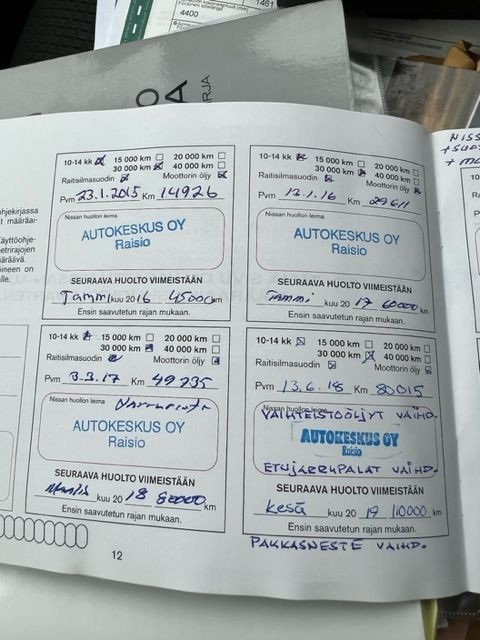 1461
4400
10-14 kk 15 000 km 20 000 km
30 000 km 40 000 km
Raitisilmasuodin Moottorin öljy
Pvm 23.1.2015 Km 14926
Nissan huollon leima
AUTOKESKUS OY
Raisio
SEURAAVA HUOLTO VIIMEISTÄÄN
Tammi kuu 20 16 45000 km
Ensin saavutetun rajan mukaan.
10-14 kk 15 000 km 20 000 km
30 000 km 40 000 km
Raitisilmasuodin Moottorin öljy
Pvm 13.1.16 Km 29611
Nissan huollon leima
AUTOKESKUS OY
Raisio
SEURAAVA HUOLTO VIIMEISTÄÄN
Tammi kuu 20 17 60000 km
Ensin saavutetun rajan mukaan.
10-14 kk 15 000 km 20 000 km
30 000 km 40 000 km
Raitisilmasuodin Moottorin öljy
Pvm 3.3.17 Km 49235
Nissan huollon leima
AUTOKESKUS OY
Raisio
SEURAAVA HUOLTO VIIMEISTÄÄN
Maalis kuu 20 18 80000 km
Ensin saavutetun rajan mukaan.
10-14 kk 15 000 km 20 000 km
30 000 km 40 000 km
Raitisilmasuodin Moottorin öljy
Pvm 13.6.18 Km 80015
Nissan huollon leima
VAIHTEISTOÖLJYT VAIHD.
AUTOKESKUS OY
Raisio
ETUJARRUPALAT VAIHD.
SEURAAVA HUOLTO VIIMEISTÄÄN
Kesä kuu 20 19 110000 km
Ensin saavutetun rajan mukaan.
PAKKASNESTE VAIHD.
12